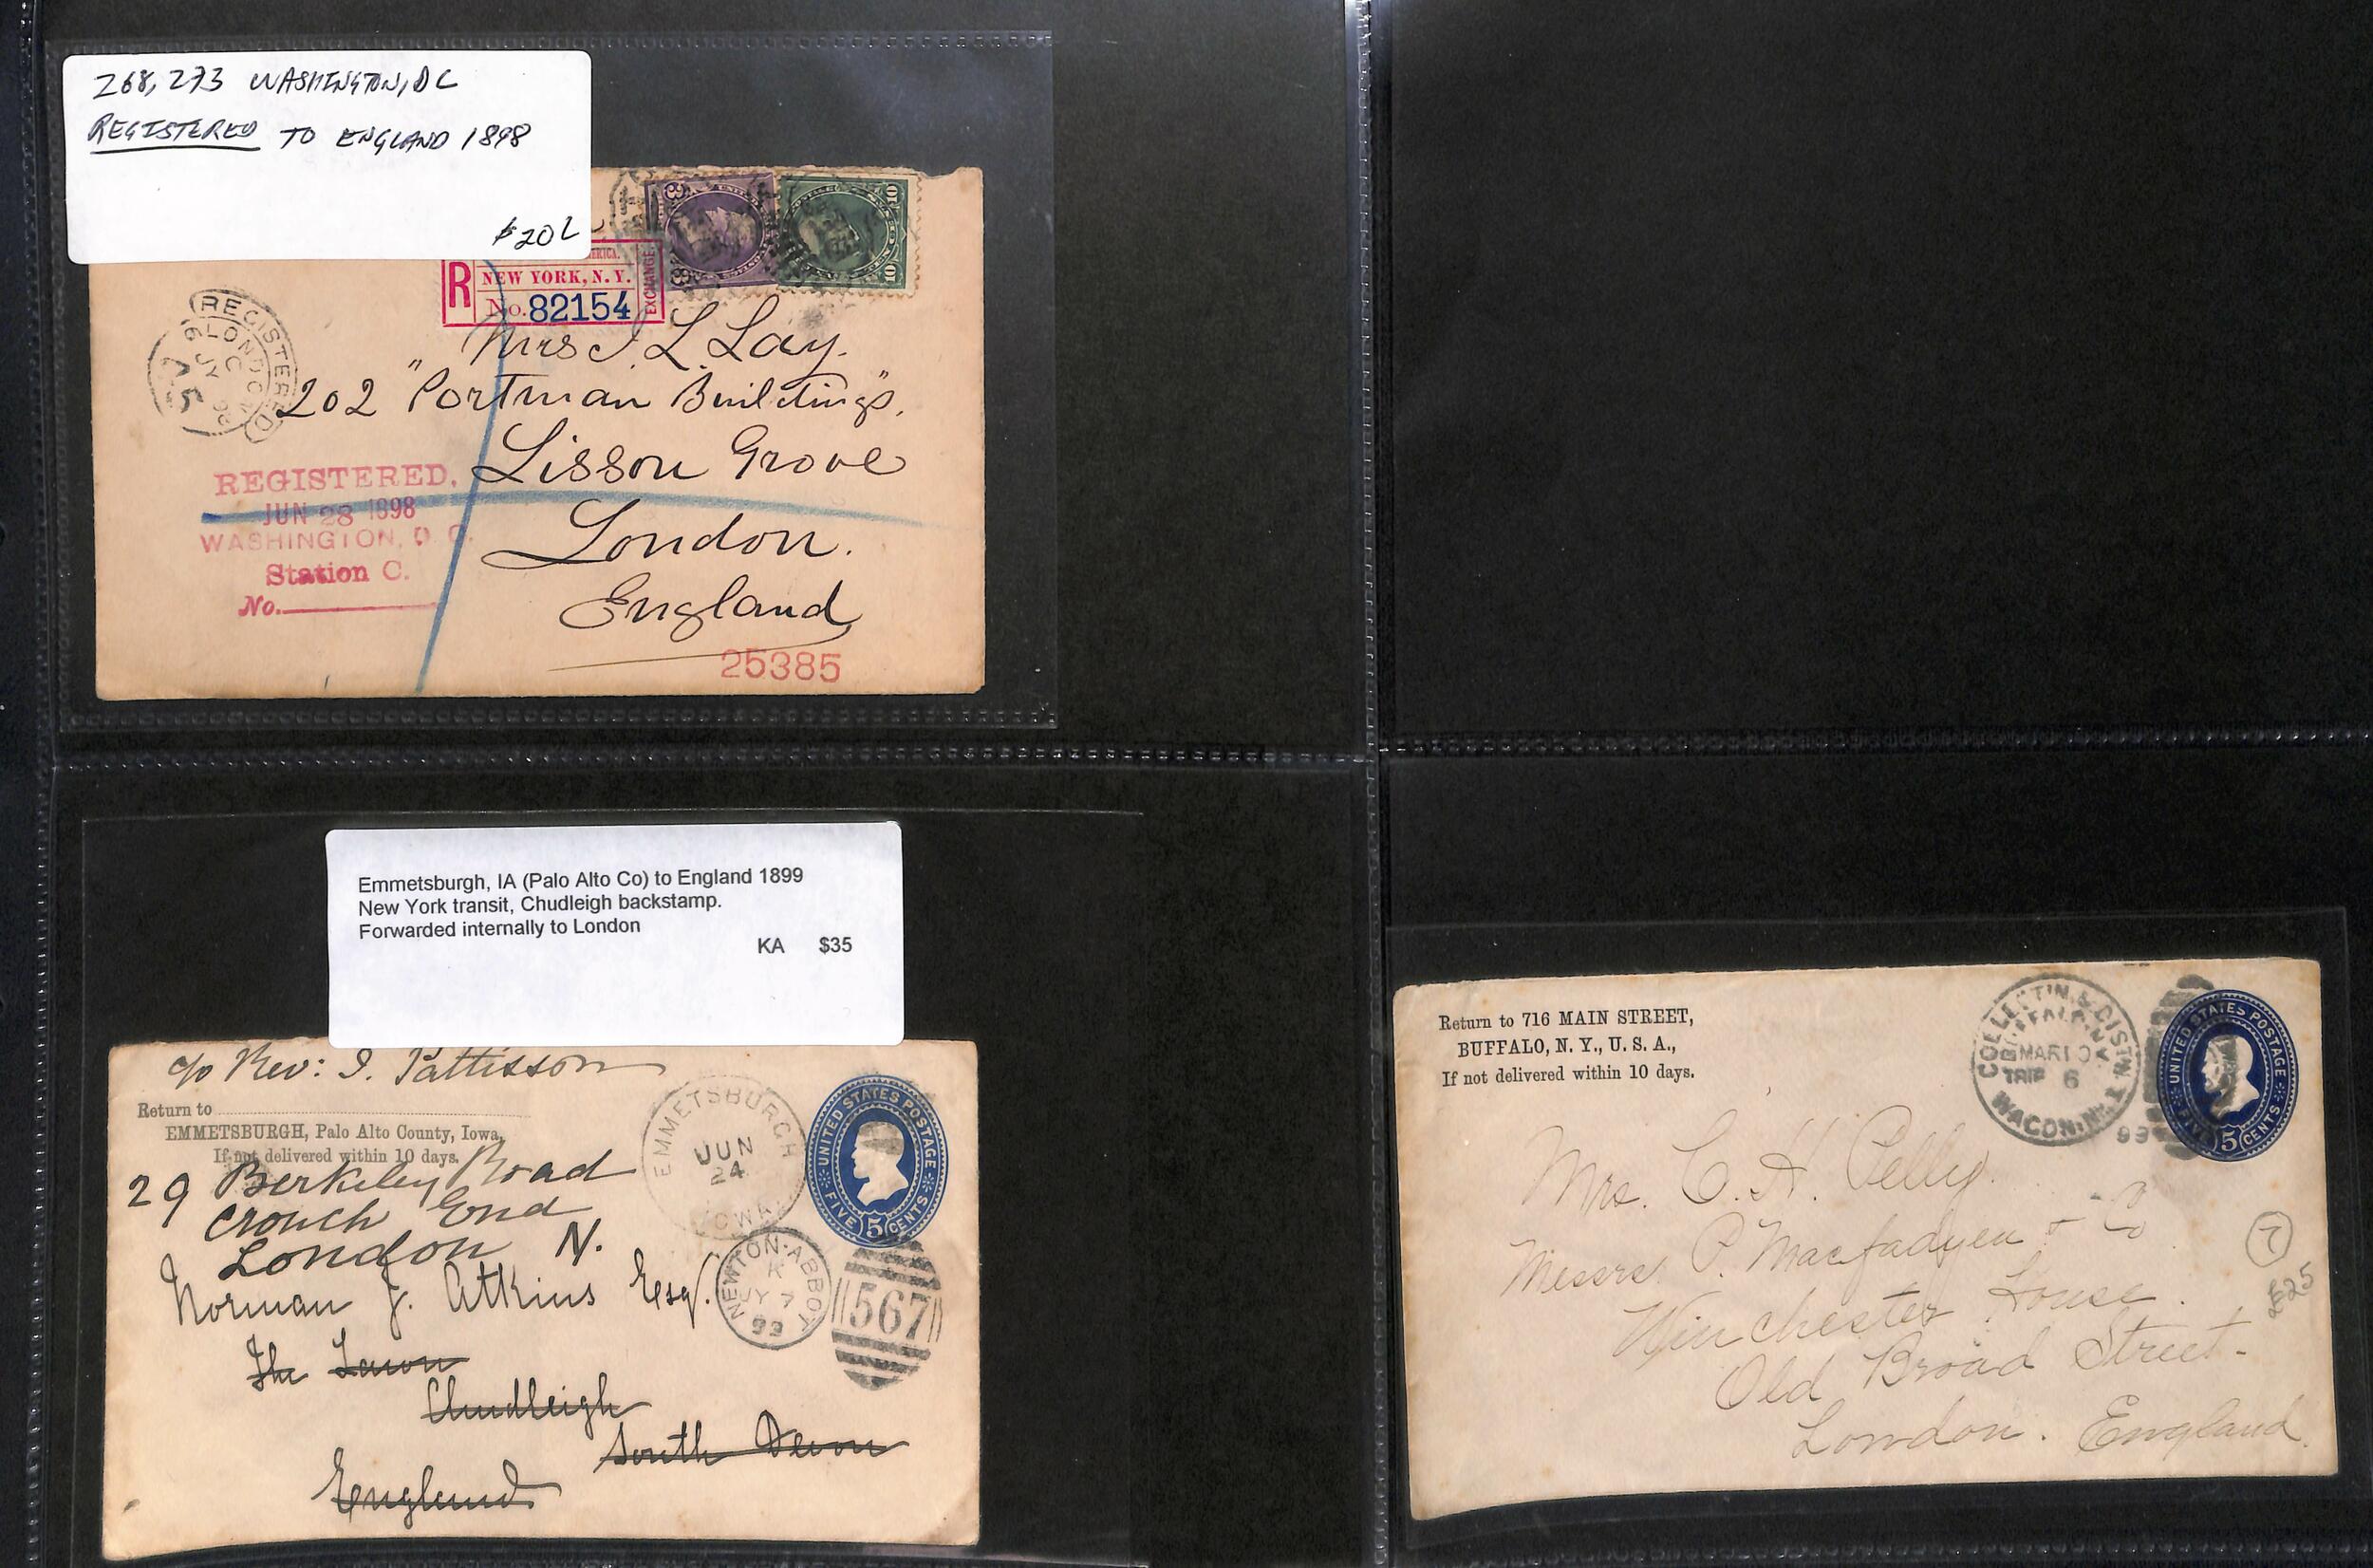 268, 273 WASHINGTON, DC
REGISTERED TO ENGLAND 1898
$20
3
10 10
R
NEW YORK, N. Y.
No. 82154
EXCHANGE
REGISTERED
LONDON
C
6 JY 98
Mrs J L. Lay.
202 "Portman Buildings",
Lisson Grove
London.
England
REGISTERED,
JUN 28 1898
WASHINGTON, D. C.
Station C.
No.
25385
Emmetsburgh, IA (Palo Alto Co) to England 1899
New York transit, Chudleigh backstamp.
Forwarded internally to London
KA $35
c/o Rev: I. Pattisson
Return to
EMMETSBURGH, Palo Alto County, Iowa,
If not delivered within 10 days.
29 Berkeley Road
Crouch End
London N.
EMMETSBURGH
JUN
24
IOWA
UNITED STATES POSTAGE
FIVE 5 CENTS
NEWTON-ABBOT
K
JY 7
99
567
Norman J. Atkins Esq.
The Lawn
Chudleigh
South Devon
England
Return to 716 MAIN STREET,
BUFFALO, N. Y., U. S. A.,
If not delivered within 10 days.
COLLECT'N. & DIST'N
BUFFALO, N.Y.
MAR 10
TRIP 6
WAGON. No. 1
99
UNITED STATES POSTAGE
FIVE 5 CENTS
Mrs. C. H. Pelly.
Messrs. P. Macfadyen & Co
Winchester House.
Old Broad Street.
London. England.
7
£25